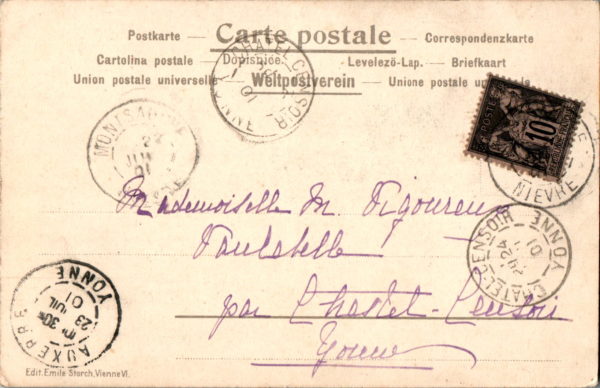 Postkarte — Carte postale — Correspondenzkarte
Cartolina postale — Dopisnice. Levelező-Lap. — Briefkaart
Union postale universelle — Weltpostverein — Unione postale
CHATEL CENSOIR
YONNE
01
POSTE
10
NIEVRE
MONTSA
22
JUIL
01
Mademoiselle M. Vigoureux
Vaulabelle
CHATEL-CENSOIR
24
01
YONNE
par Chastel-Censoir
Yonne
AUXERRE
30
23
JUIL
01
YONNE
Edit. Emile Storch, Vienne VI.